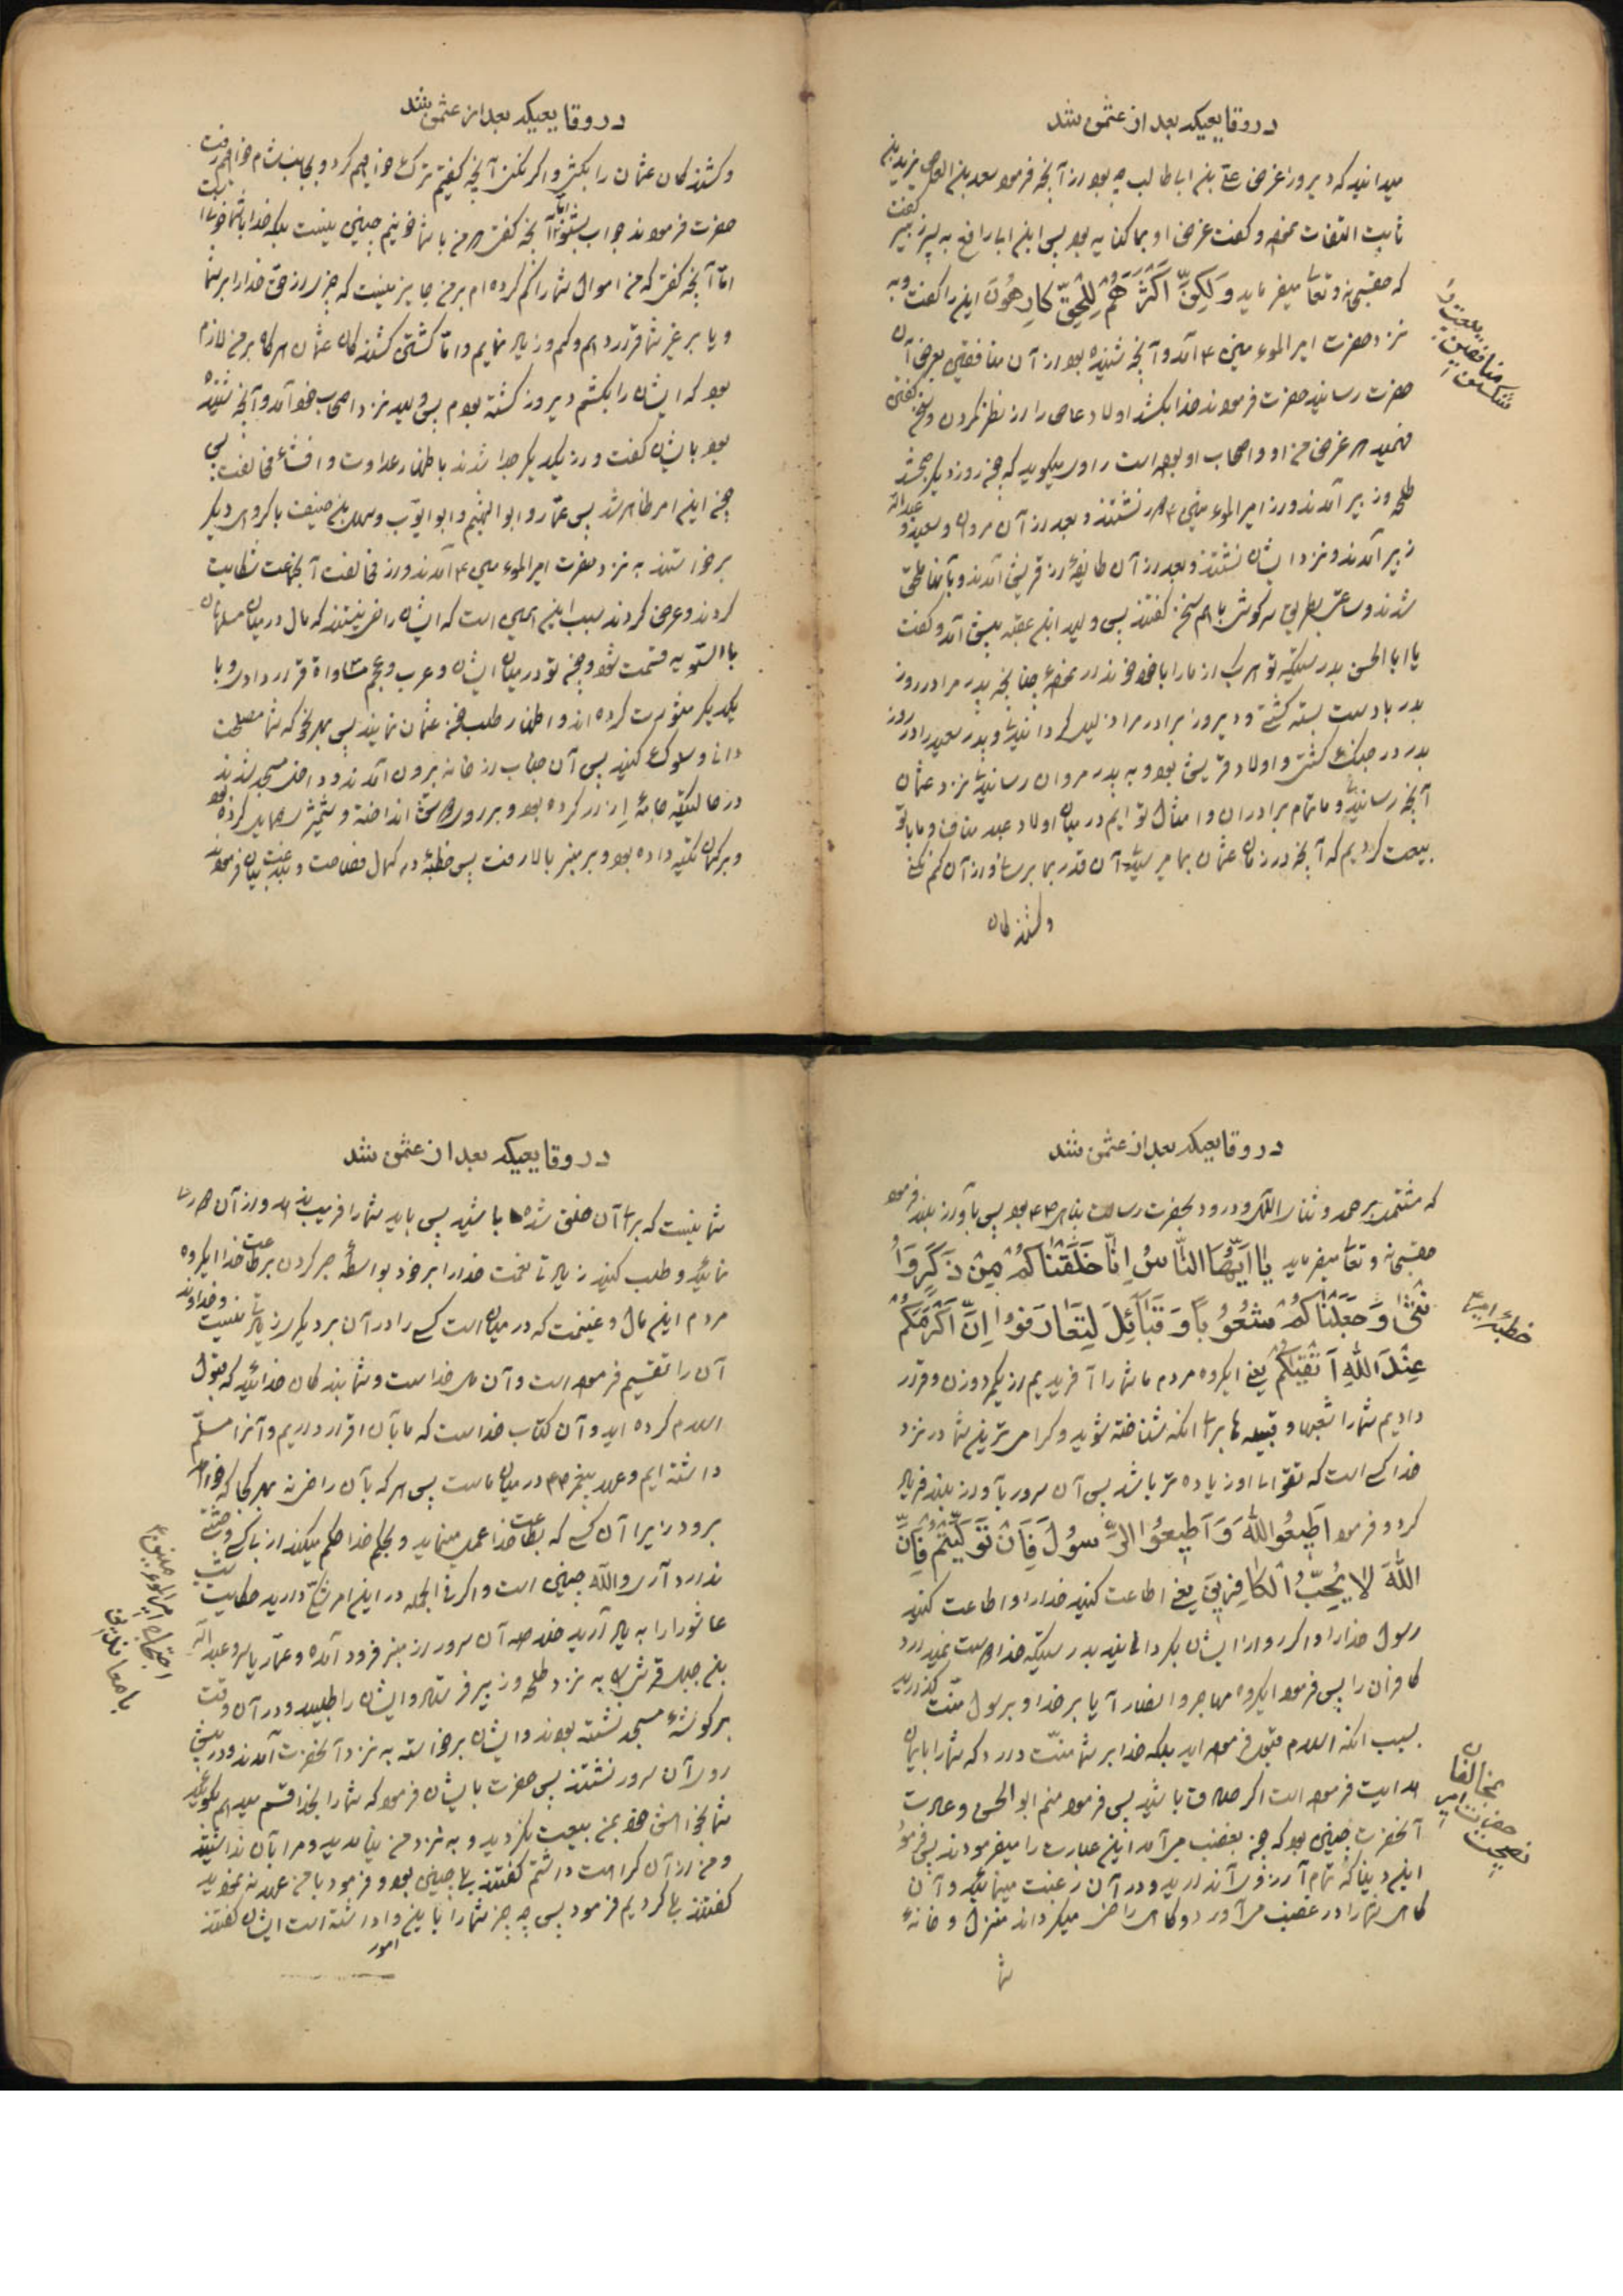 در وقایعیکه بعد از عثمن شد
میدانید که دیروز غرض علی بن ابا طالب چه بود از آنچه فرمود سعد بن العاص یزید بن
ثابت التفات نموده و گفت غرض او بما کنایه بود پس ابن ابا رافع به پسر زبیر گفت
که حقسبحانه و تعالی میفرماید وَلٰکِنَّ اَکْثَرَهُمْ لِلْحَقِّ کَارِهُونَ این را گفت و به
نزد حضرت امیر المؤمنین ع آمد و آنچه شنیده بود از آن منافقین بعرض آن
حضرت رسانید حضرت فرمودند خدا بکشد اولاد عاص را از نظر کردن و سخن گفتن
فهمید که غرض من او و اصحاب او بوده است راوی میگوید که چون روز دیگر صبح شد
طلحه و زبیر آمدند و از امیر المؤمنین ع دور نشستند و بعد از آن مروان و سعید و عبدالله
زبیر آمدند و نزد ایشان نشستند و بعد از آن طایفهٔ از قریش آمدند و بآنها ملحق
شدند و ساعتی بطریق سرگوشی با هم سخن گفتند پس ولید ابن عقبه پیش آمد و گفت
یا ابا الحسن بدرستیکه تو هر یک از ما را با خود خونداری نمودهٔ چنانچه پدر مرا در روز
بدر با دست بسته کشتی و دیروز برادر مرا ذلیل گردانیدی و پدر سعید را در روز
بدر در جنگ کشتی و اولاد قریش بود و به پدر مروان رسانیدی نزد عثمان
آنچه رسانیدی و ما تمام برادران و امثال تو ایم در میان اولاد عبد مناف و ما با تو
بیعت کردیم که آنچه در زمان عثمان بما میرسید آن قدر بما برسد و از آن کم نکنی
و کشندکان
بیعت
منافقین
شکستن
در وقایعیکه بعد از عثمن شد
و کشندکان عثمان را بکشی و اگر نکنی آنچه گفتیم ترک تو خواهیم کرد و بجانب شام خواهیم رفت
حضرت فرمودند جواب بشنو اما آنچه گفتی که من با شما خونینم چنین نیست بلکه خدا با شما خونی است
امّا آنچه گفتی که من اموال شما را کم کرده ام بر من جایز نیست که چیزی از حق خدا را بر شما
و یا بر غیر شما قرار دهم و کم و زیاد نمایم و امّا کشتن کشندکان عثمان هرگاه بر من لازم
بود که ایشان را بکشم دیروز کشته بودم پس ولید نزد اصحاب خود آمد و آنچه شنیده
بود بایشان گفت و از یکدیگر جدا شدند باظهار عداوت و افشاء مخالفت پس
چون این امر ظاهر شد پس عمّار و ابو الهیثم و ابو ایّوب و سهل بن حنیف با گروهی دیگر
برخواستند به نزد حضرت امیر المؤمنین ع آمدند و از مخالفت آنجماعت شکایت
کردند و عرض کردند سبب این همین است که ایشان راضی نیستند که مال در میان مسلمانان
بالسویه قسمت شود و چون تو در میان ایشان و عرب و عجم مساواة قرار دادی و با
یکدیگر مشورت کرده اند و اظهار طلب خون عثمان نمایند پس بهر نحو که شما مصلحت
دانا و سلوک کنید پس آن جناب از خانه بیرون آمدند و داخل مسجد شدند
در حالتیکه جامهٔ ازار در کرده بود و بر روی دوش انداخته و شمشیر حمایل کرده بود
و بر کمان تکیه داده بود و بر منبر بالا رفت پس خطبهٔ در کمال فصاحت و بلاغت بیان فرمود
در وقایعیکه بعد از عثمن شد
که مشتمل بر حمد و ثنای الهی و درود بحضرت رسالت پناهی ص بود پس بآواز بلند فرمود
حقسبحانه و تعالی میفرماید یٰا اَیُّهَا النّٰاسُ اِنّٰا خَلَقْنٰاکُمْ مِنْ ذَکَرٍ وَ اُ
نْثیٰ وَ جَعَلْنٰاکُمْ شُعُوبًا وَ قَبٰآئِلَ لِتَعٰارَفُوا اِنَّ اَکْرَمَکُمْ
عِنْدَ اللّٰهِ اَتْقٰیکُمْ یعنی ایگروه مردم ما شما را آفریدیم از یکمرد و زن و قرار
دادیم شما را شعبها و قبیله ها برای انکه شناخته شوید و گرامی ترین شما در نزد
خدا کسی است که تقوای او زیاده تر باشد پس آن سرور بآواز بلند فریاد
کرد و فرمود اَطِیعُوا اللّٰهَ وَ اَطِیعُوا الرَّسُولَ فَاِنْ تَوَلَّیْتُمْ فَاِنَّ
اللّٰهَ لٰا یُحِبُّ الْکٰافِرِینَ یعنی اطاعت کنید خدا را و اطاعت کنید
رسول خدا را و اگر رو از ایشان بگردانید بدرستیکه خدا دوست نمیدارد
کافران را پس فرمود ایگروه مهاجر و انصار آیا بر خدا و بر رسول منّت گذارید
بسبب انکه اسلام قبول فرموده اید بلکه خدا بر شما منّت دارد که شما را بایمان
هدایت فرموده است اگر صادق باشید پس فرمود منم ابو الحسن و عادت
آنحضرت چنین بود که چون بغضب می آمد این عبارت را میفرمودند پس فرمود
این دنیا که تمام آرزوی آن دارید و در آن رغبت مینمائید و آن
کاهی شما را در غضب می آورد و کاهی راضی میگرداند منزل و خانهٔ
شما
خطبهٔ امیر ع
بمخالفان
حضرت امیر
نصیحت
در وقایعیکه بعد از عثمن شد
شما نیست که برای آن خلق شده باشید پس باید شما را فریب ندهد و از آن حذر
نمائید و طلب کنید زیادتی نعمت خدا را بر خود بواسطهٔ صبر کردن بر طاعت خدا ایگروه
مردم این مال و غنیمت که در میان است کسی را در آن بر دیگری زیادتی نیست و خداوند
آن را تقسیم فرموده است و آن مال خداست و شما بندکان خدائید که قبول
اسلام کرده اید و آن کتاب خداست که ما بآن اقرار داریم و آنرا مسلّم
داشته ایم و عهد پیغمبر ص در میان ماست پس هر که بآن راضی نه بهر کجا که خواهد
برود زیرا آن کسی که بطاعت خدا عمل مینماید و بحکم خدا حکم میکند از باکی و وحشتی
ندارد آری والله چنین است و اگر فی الجمله در این امر شکی دارید حکایت شب
عاشورا را به یاد آرید خلاصه آن سرور از منبر فرود آمده و عمّار یاسر و عبدالله
بن جبل قرشی را به نزد طلحه و زبیر فرستاد و ایشان را طلبید و در آن وقت
بر گوشهٔ مسجد نشسته بودند و ایشان برخواسته به نزد آنحضرت آمدند و در پیش
روی آن سرور نشستند پس حضرت بایشان فرمود که شما را بخدا قسم میدهم بگوئید
شما بخواهش خود بمن بیعت نکردید و به نزد من نیامدید و مرا بآن نداشتید
و من از آن کراهت داشتم گفتند بلی چنین بود و فرمود با من عهد نه نمودید
گفتند بلی کردیم فرمود پس چه چیز شما را باین وا داشته است ایشان گفتند
امور
احتجاج امیر المؤمنین ع
با معاندین